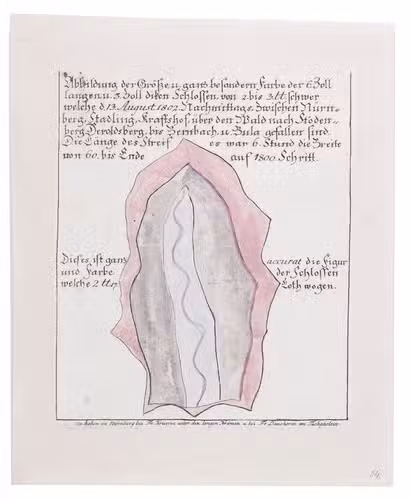 Abbildung der Größe u. ganz besondern Farbe der 6 Zoll
langen u. 3. Zoll diken Schlossen. von 2. bis 3. tt. schwer
welche d. 13. August 1802. Nachmittags. zwischen Nürn=
berg, Stadling, Kraftshof, über den Wald nach Stöden=
berg, Deroldsberg, bis Bernbach. u. Bula gefallen sind.
Die Länge des Streif es war 6. Stund die Breite
von 60. bis Ende auf 1800 Schritt.
Dieses ist ganz accurat die Figur
und Farbe der Schlossen
welche 2 tt. Loth wogen.
Zu haben in Nürnberg bey unter den langen u. bei Fr.